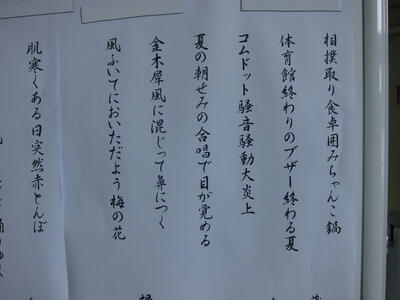 相撲取り食卓囲みちゃんこ鍋
体育館終わりのブザー終わる夏
コムドット騒音騒動大炎上
夏の朝せみの合唱で目が覚める
金木犀風に混じって鼻につく
風ふいてにおいただよう梅の花
肌寒くある日突然赤とんぼ